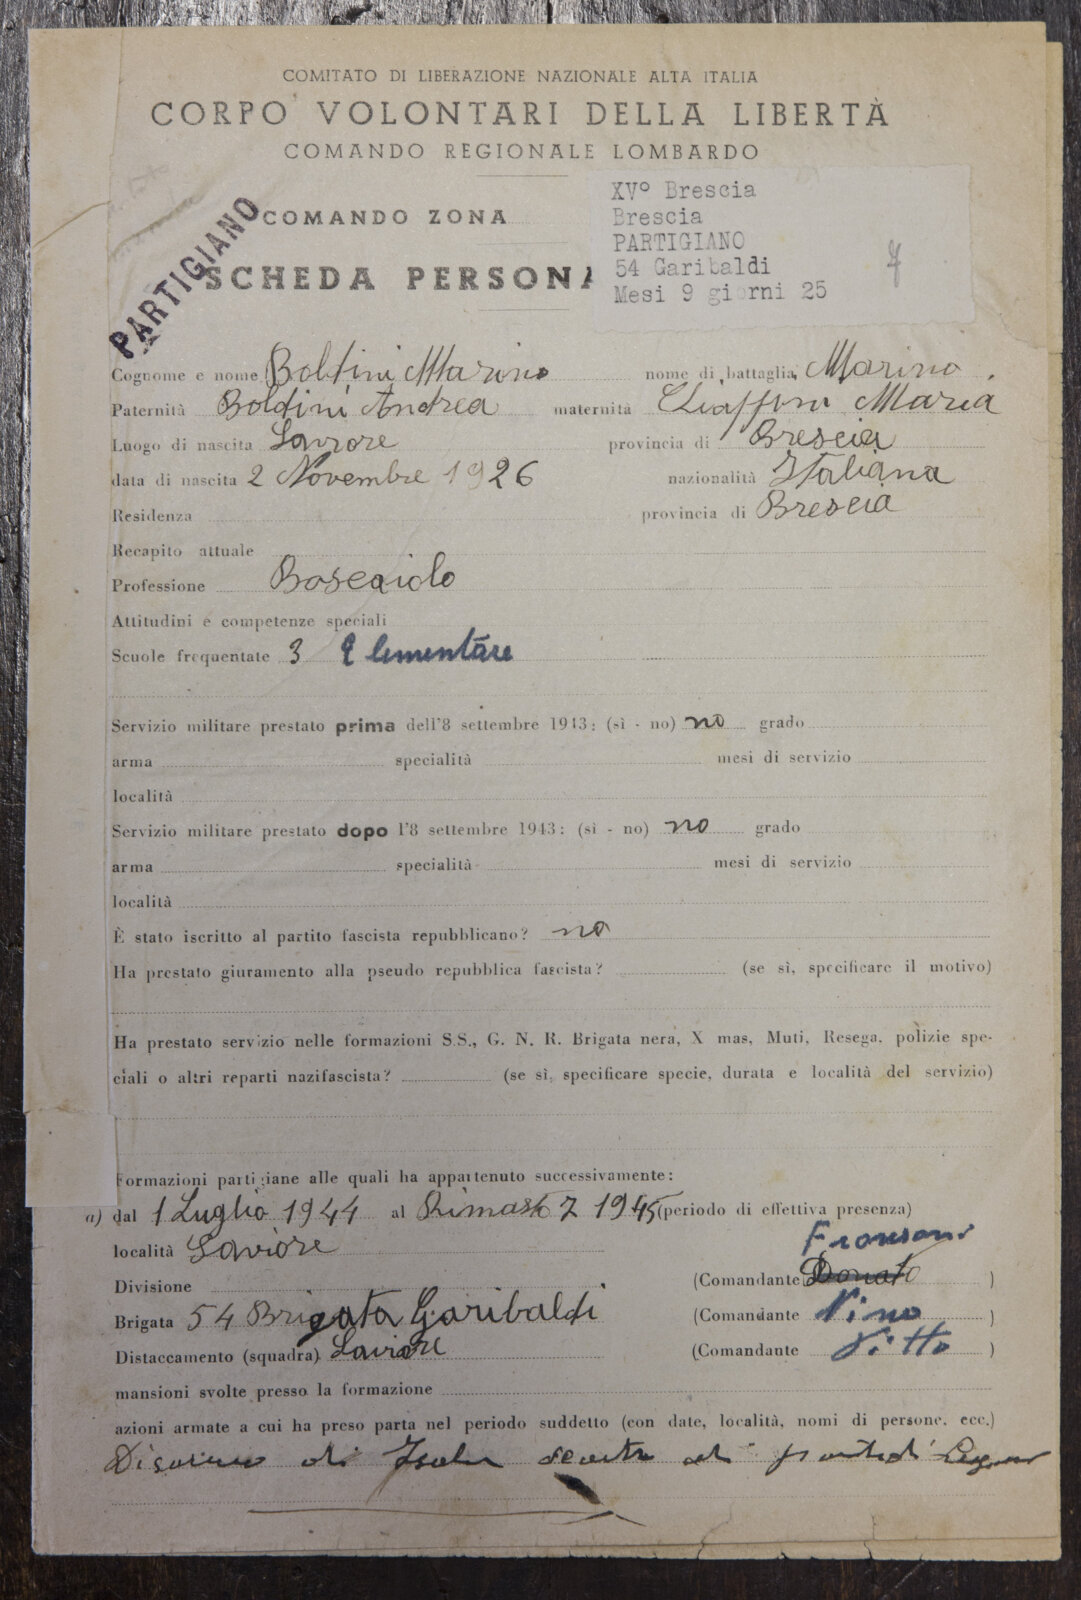 COMITATO DI LIBERAZIONE NAZIONALE ALTA ITALIA
CORPO VOLONTARI DELLA LIBERTÀ
COMANDO REGIONALE LOMBARDO
COMANDO ZONA
PARTIGIANO
SCHEDA PERSONA
XVº Brescia
Brescia
PARTIGIANO
54 Garibaldi
Mesi 9 giorni 25
7
Cognome e nome Boldini Marino nome di battaglia Marino
Paternità Boldini Andrea maternità Chiappini Maria
Luogo di nascita Saviore provincia di Brescia
data di nascita 2 Novembre 1926 nazionalità Italiana
Residenza provincia di Brescia
Recapito attuale
Professione Boscaiolo
Attitudini e competenze speciali
Scuole frequentate 3 Elementare
Servizio militare prestato prima dell'8 settembre 1943: (sì - no) no grado
arma specialità mesi di servizio
località
Servizio militare prestato dopo l'8 settembre 1943: (sì - no) no grado
arma specialità mesi di servizio
località
È stato iscritto al partito fascista repubblicano? no
Ha prestato giuramento alla pseudo repubblica fascista? (se sì, specificare il motivo)
Ha prestato servizio nelle formazioni S.S., G. N. R. Brigata nera, X mas, Muti, Resega, polizie spe-
ciali o altri reparti nazifascista? (se sì, specificare specie, durata e località del servizio)
Formazioni partigiane alle quali ha appartenuto successivamente:
a) dal 1 Luglio 1944 al 1945 (periodo di effettiva presenza)
località Saviore
Divisione (Comandante Donato )
Brigata 54 Brigata Garibaldi (Comandante Nino )
Distaccamento (squadra) Saviore (Comandante Vitto )
mansioni svolte presso la formazione
azioni armate a cui ha preso parta nel periodo suddetto (con date, località, nomi di persone, ecc.)
Disarmo di Isola